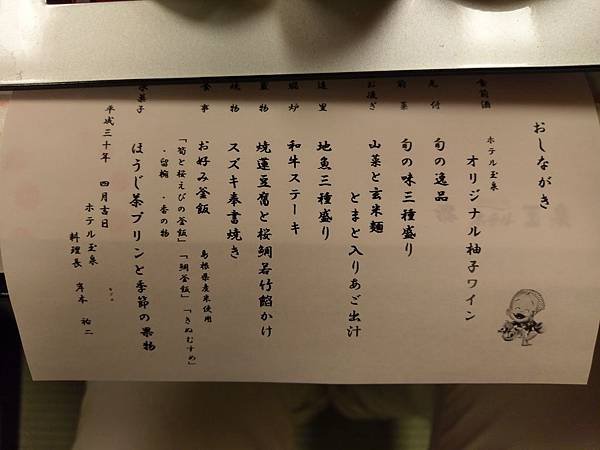 おしながき
食前酒
ホテル玉泉
オリジナル柚子ワイン
先付
旬の逸品
前菜
旬の味三種盛り
お凌ぎ
山菜と玄米麺
とまと入りあご出汁
造里
地魚三種盛り
焜炉
和牛ステーキ
蓋物
焼蓮豆腐と桜鯛若竹餡かけ
焼物
スズキ奉書焼き
食事
お好み釜飯
島根県産米使用
「筍と桜えびの釜飯」「鯛釜飯」「きぬむすめ」
・留椀 ・香の物
水菓子
ほうじ茶プリンと季節の果物
平成三十年 四月吉日
ホテル玉泉
料理長 岸本 祐二